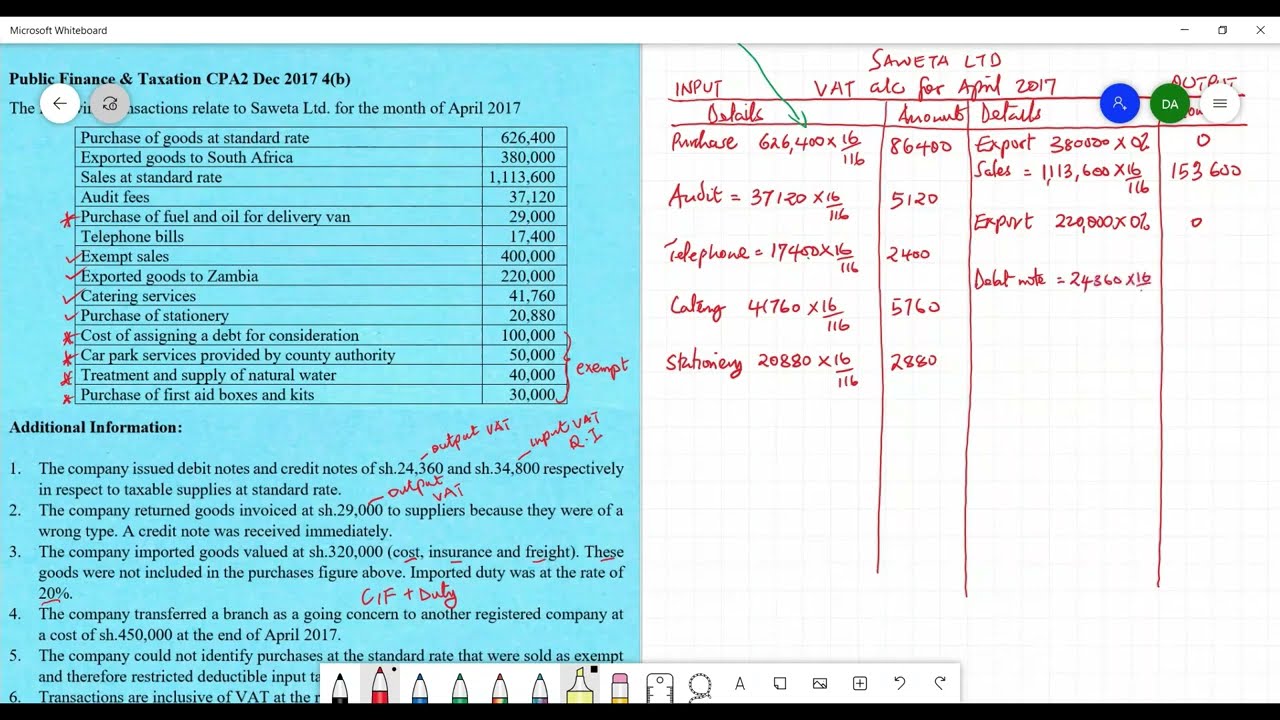 Microsoft Whiteboard
Public Finance & Taxation CPA2 Dec 2017 4(b)
The transactions relate to Saweta Ltd. for the month of April 2017
Purchase of goods at standard rate 626,400
Exported goods to South Africa 380,000
Sales at standard rate 1,113,600
Audit fees 37,120
Purchase of fuel and oil for delivery van 29,000
Telephone bills 17,400
Exempt sales 400,000
Exported goods to Zambia 220,000
Catering services 41,760
Purchase of stationery 20,880
Cost of assigning a debt for consideration 100,000
Car park services provided by county authority 50,000
Treatment and supply of natural water 40,000
Purchase of first aid boxes and kits 30,000
exempt
Additional Information:
output VAT
input VAT
Q.I
1. The company issued debit notes and credit notes of sh.24,360 and sh.34,800 respectively
in respect to taxable supplies at standard rate.
output
VAT
2. The company returned goods invoiced at sh.29,000 to suppliers because they were of a
wrong type. A credit note was received immediately.
3. The company imported goods valued at sh.320,000 (cost, insurance and freight). These
goods were not included in the purchases figure above. Imported duty was at the rate of
20%.
CIF + Duty
4. The company transferred a branch as a going concern to another registered company at
a cost of sh.450,000 at the end of April 2017.
5. The company could not identify purchases at the standard rate that were sold as exempt
and therefore restricted deductible input
6. Transactions are inclusive of VAT at the
SAWETA LTD
INPUT VAT a/c for April 2017 OUTPUT
Details Amount Details
Purchase 626,400 × 16/116 86400 Export 380000 × 0% 0
Sales = 1,113,600 × 16/116 153600
Audit = 37120 × 16/116 5120
Export 220,000 × 0% 0
Telephone = 17400 × 16/116 2400
Debit note = 24360 × 16
Catering 41760 × 16/116 5760
Stationery 20880 × 16/116 2880
DA
A